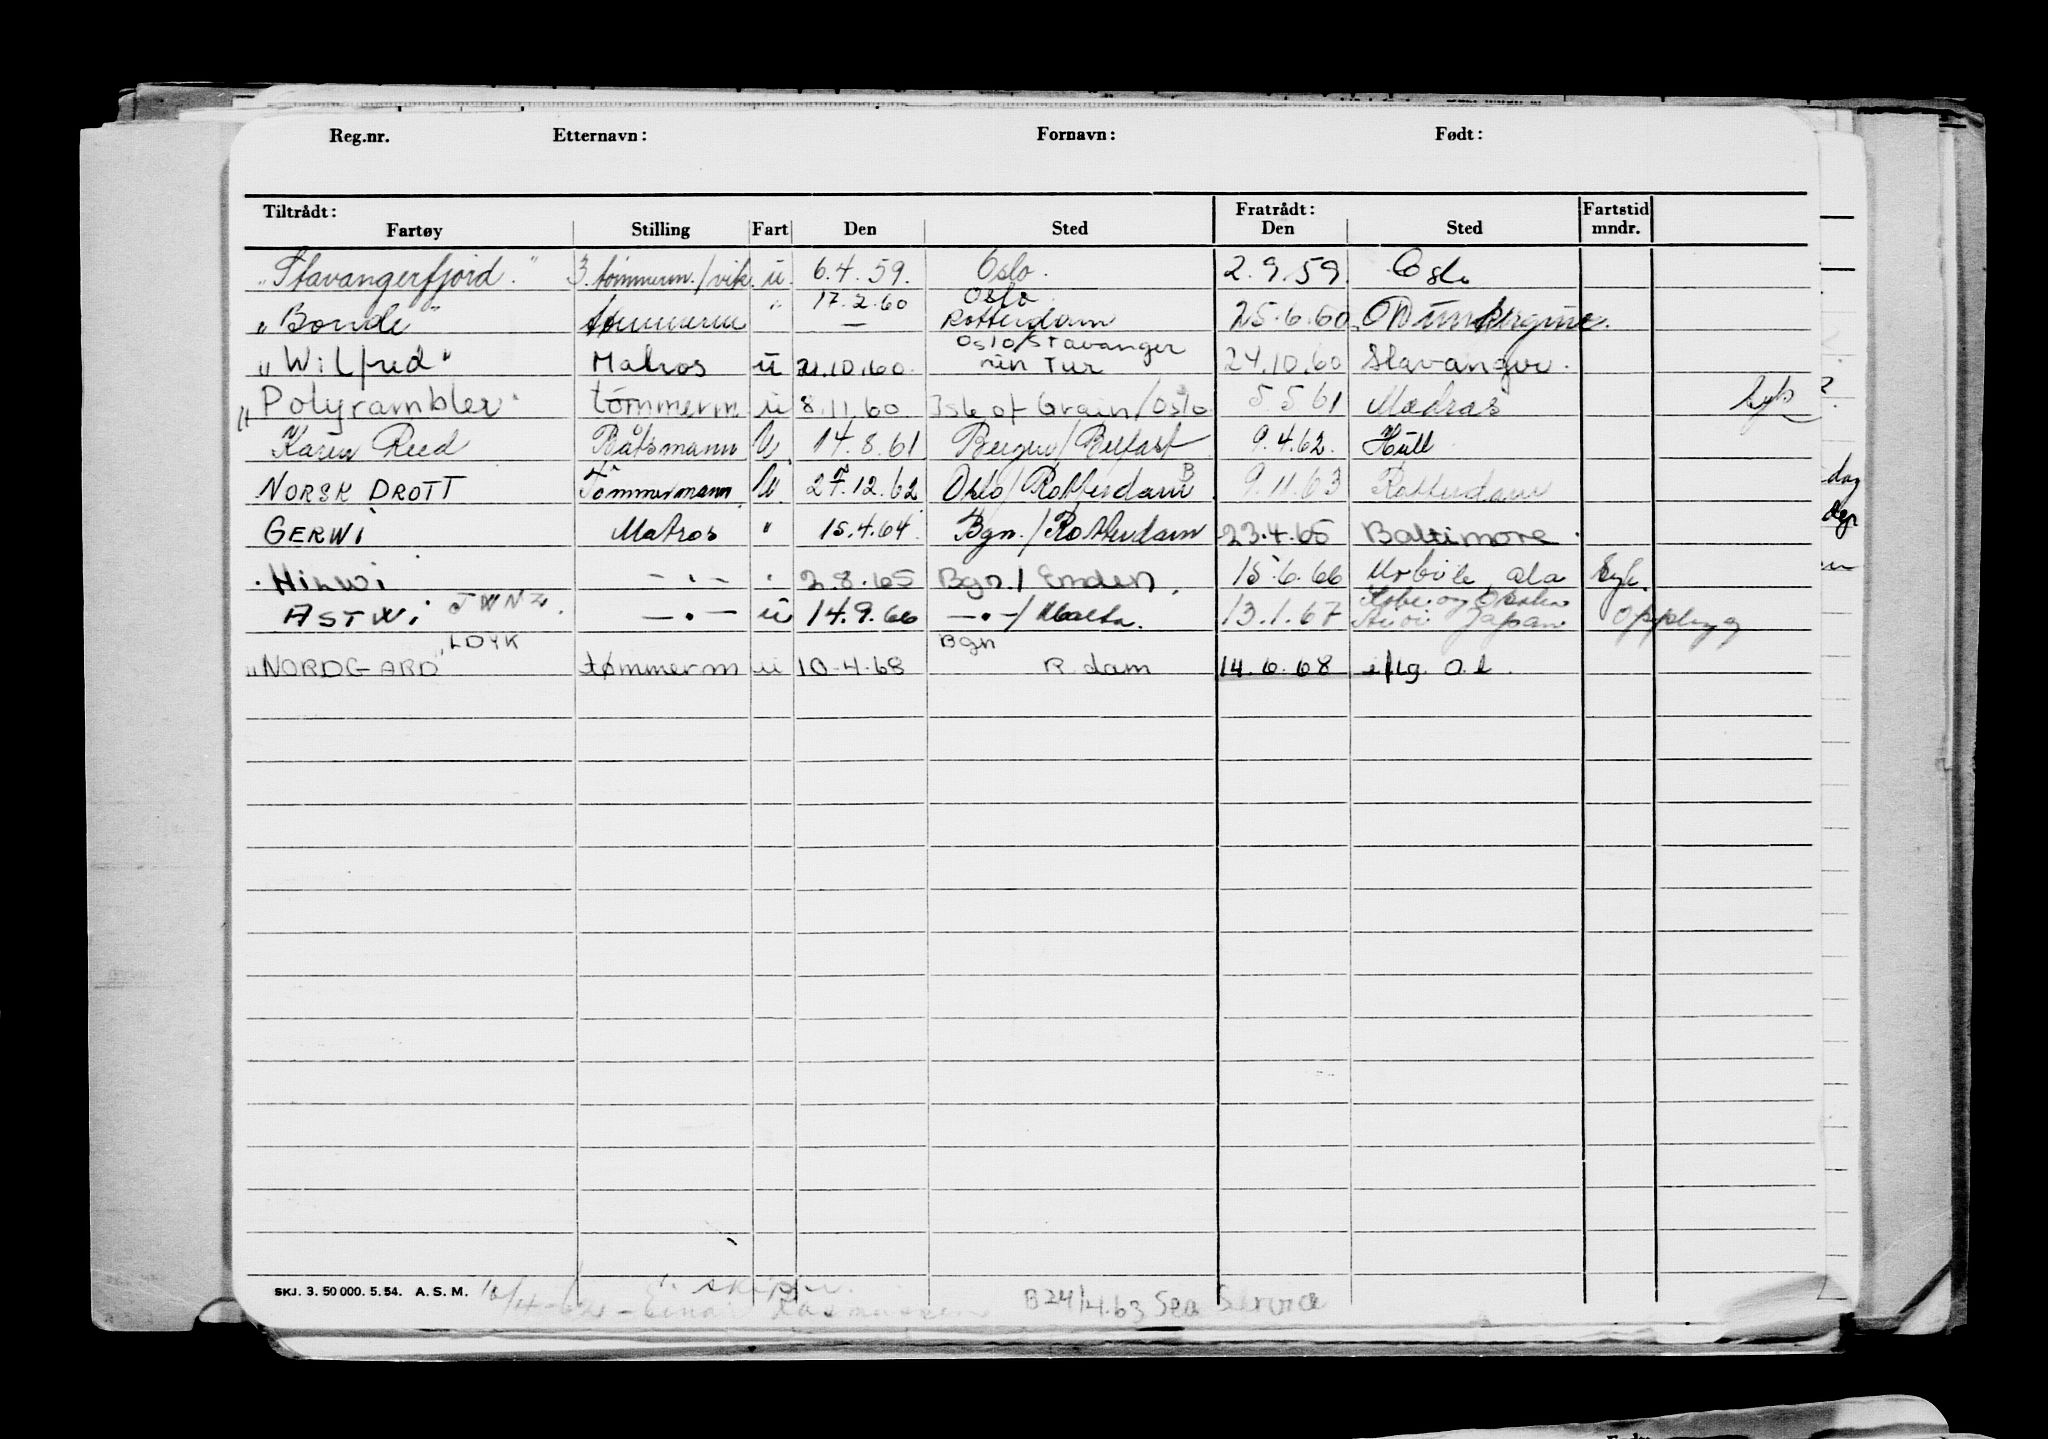 Reg.nr. Etternavn: Fornavn: Født:
Tiltrådt: Fratrådt: Fartstid
Fartøy Stilling Fart Den Sted Den Sted mndr.
"Stavangerfjord" 3. tømmerm./vik. u. 6.4.59. Oslo. 2.9.59. Oslo
"Bonde" tømmerm " 17.2.60 — Oslo Rotterdam 25.6.60
"Wilfred" Matros u 21.10.60. Oslo/Stavanger min Tur 24.10.60 Stavanger.
"Polyrambler" tömmerm u 8.11.60 Isle of Grain/Oslo 5.5.61 Madras Syk
Karen Reed Båtsmann U 14.8.61 Bergen/Belfast 9.4.62. Hull
NORSK DROTT Tömmermann U 27.12.62 Oslo/Rotterdam B 9.11.63 Rotterdam
GERWI Matros " 15.4.64. Bgn./Rotterdam 23.4.65 Baltimore.
HILWI — " — " 2.8.65 Bgn/Emden. 15.6.66 Mobile, Ala Syk.
ASTWI JWNZ. — " — u 14.9.66 — " —/Malta. 13.1.67 Japan Opplegg
"NORDGARD" LDYK tømmerm u 10.4.68 Bgn R.dam 14.6.68 iflg. O.l.
SKJ. 3. 50 000. 5. 54. A. S. M. B24/4.63 Sea Service